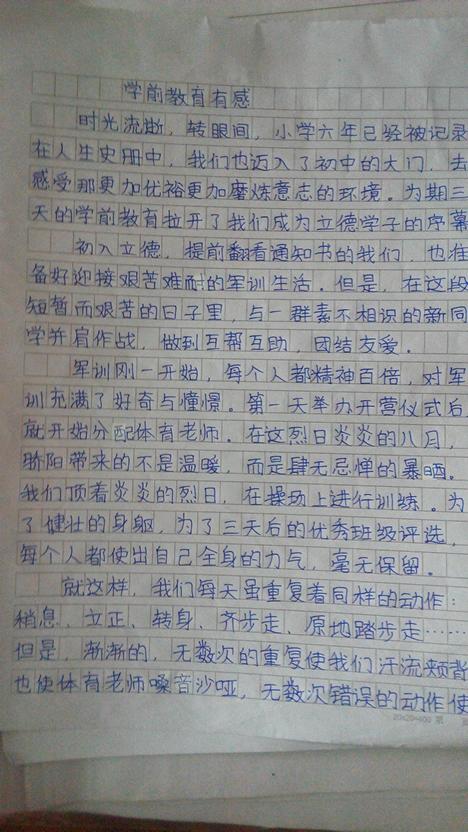 学前教育有感
时光流逝，转眼间，小学六年已经被记录
在人生史册中，我们也迈入了初中的大门，去
感受那更加优裕更加磨炼意志的环境。为期三
天的学前教育拉开了我们成为立德学子的序幕
初入立德，提前翻看通知书的我们，也准
备好迎接艰苦难耐的军训生活。但是，在这段
短暂而艰苦的日子里，与一群素不相识的新同
学并肩作战，做到互帮互助，团结友爱。
军训刚一开始，每个人都精神百倍，对军
训充满了好奇与憧憬。第一天举办开营仪式后
就开始分配体育老师。在这烈日炎炎的八月，
骄阳带来的不是温暖，而是肆无忌惮的暴晒。
我们顶着炎炎的烈日，在操场上进行训练。为
了健壮的身躯，为了三天后的优秀班级评选，
每个人都使出自己全身的力气，毫无保留。
就这样，我们每天虽重复着同样的动作：
稍息、立正、转身、齐步走、原地踏步走……
但是，渐渐的，无数次的重复使我们汗流颊背
也使体育老师嗓音沙哑，无数次错误的动作使
20×20=400 第